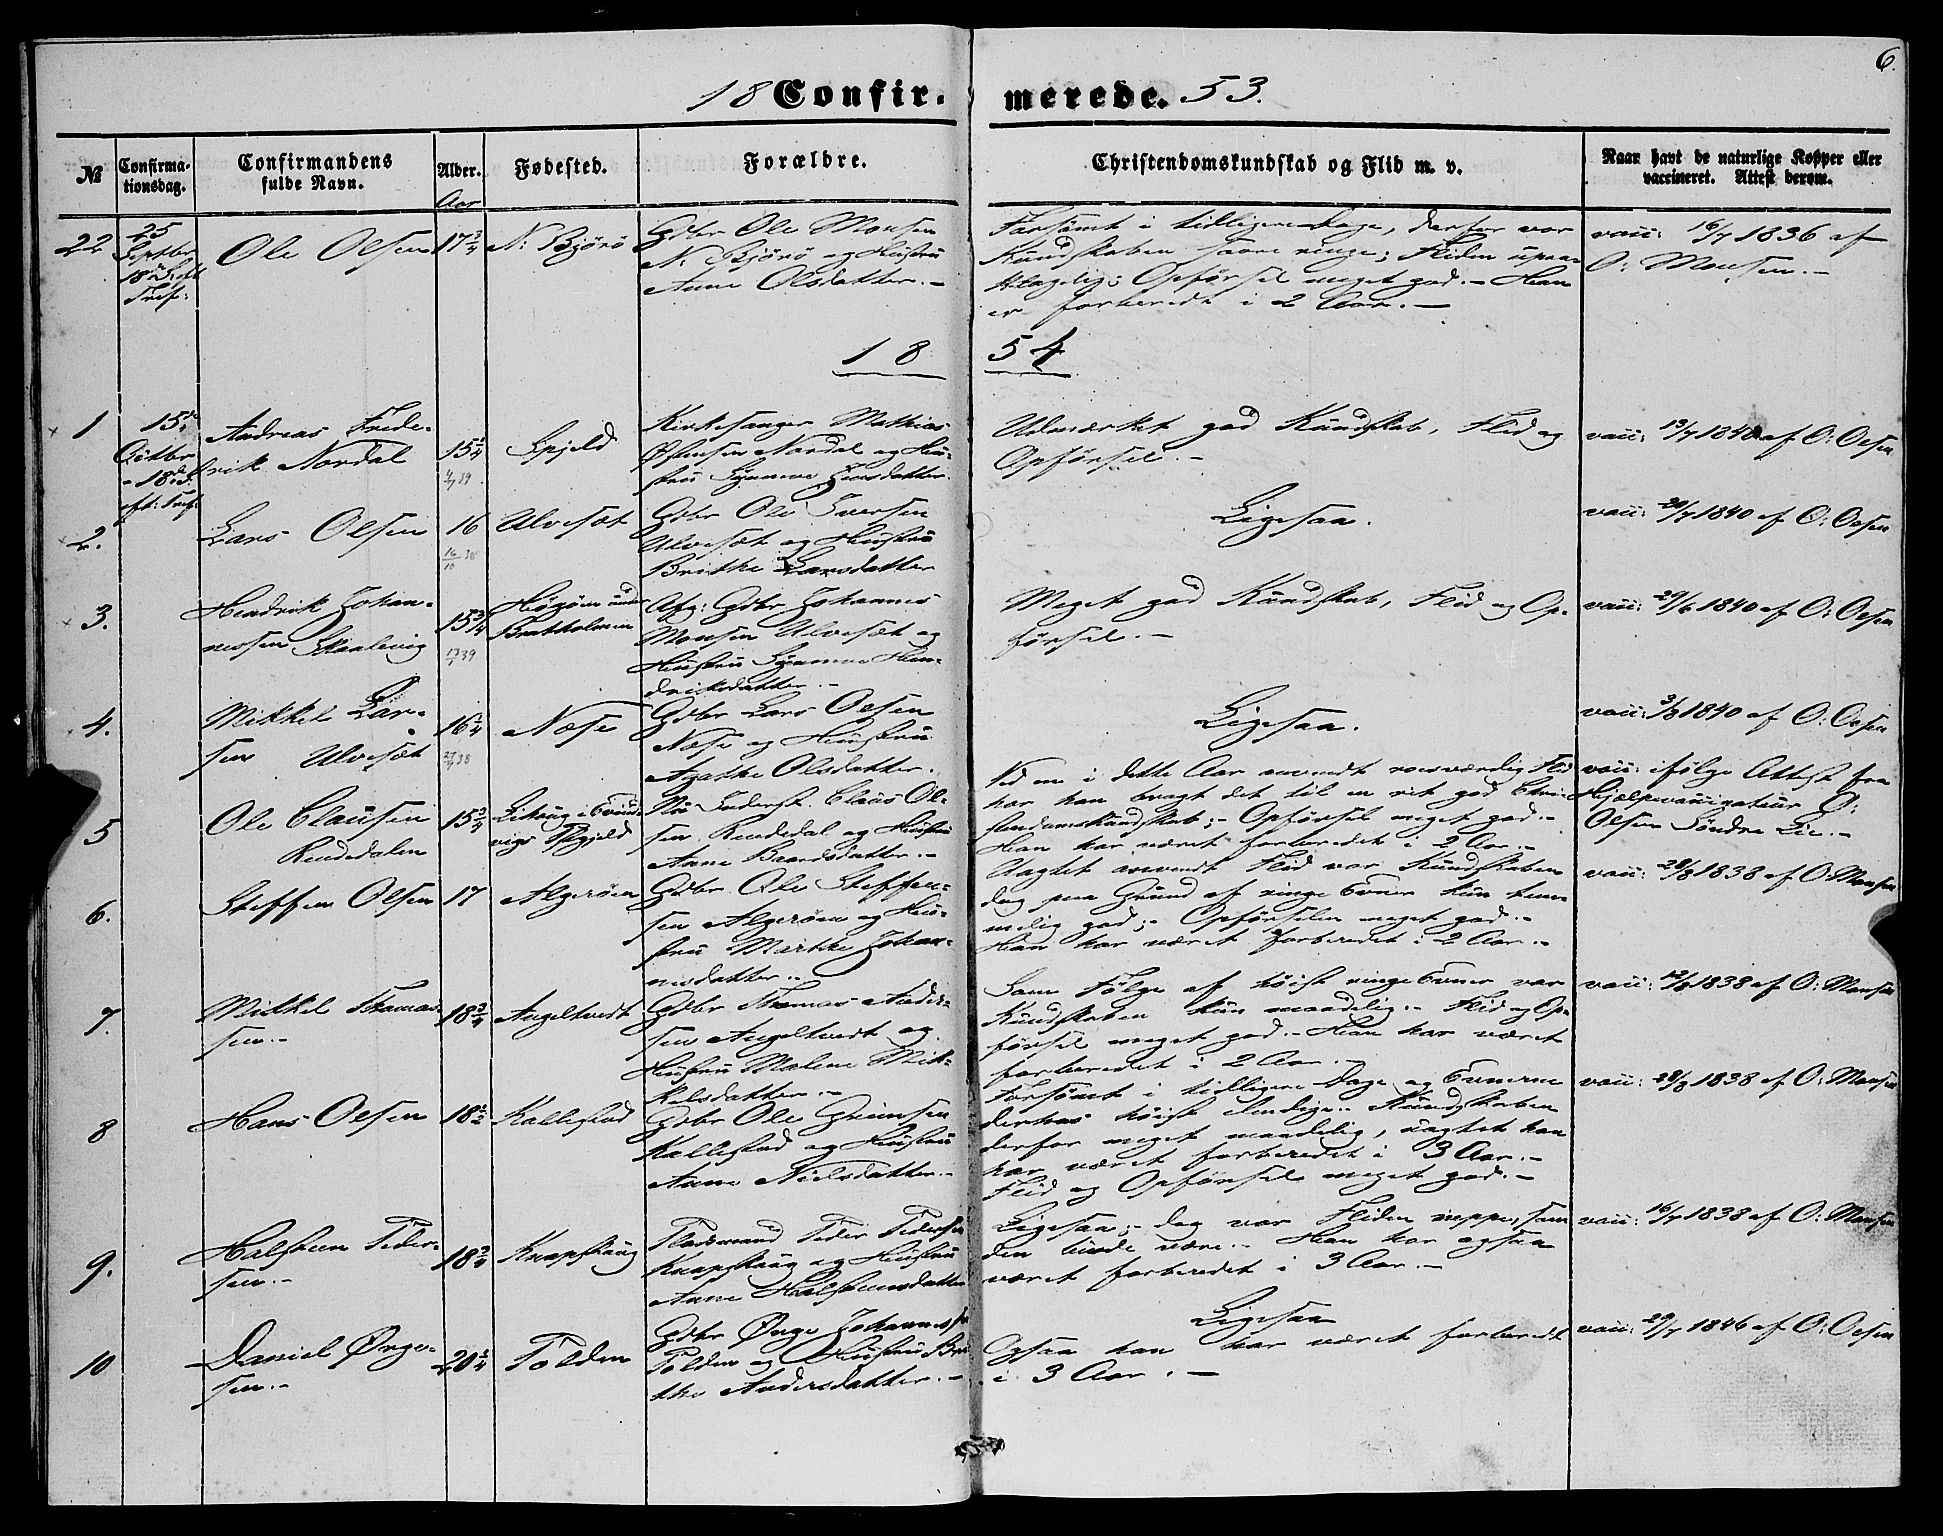 6.
18 Confir- merede. 53.
№
Confirma-
tionsdag.
Confirmandens
fulde Navn.
Alder.
Aar
Fødested.
Forældre.
Christendomskundskab og Flid m. v.
Naar havt de naturlige Kopper eller
vaccineret. Attest derom.
22
25
Septbr
18de S. eft
Tref:
Ole Olsen
17 3/4
N: Bjørø
Gdbr Ole Monsen
N: Bjørø og Hustru
Anne Olsdatter.-
Forsömt i tidligere Dage, derfor var
Kundskaben saare ringe; Fliden upaa-
klagelig; Opførsel meget god.- Han
er forberedt i 2 Aar.-
vacc: 16/7 1836 af
O: Monsen.-
18 54
1
15de
Octbr
- 18 d. S.
eft: Tref:
Andreas Frede-
rik Nordal
15 1/4
Spjeld
Kirkesanger Mathias
Nordal og Hu-
stru Synneve
Udmærket god Kundskab, Flid og
Opførsel.-
vacc: 13/7 1840 af O: Olsen
2.
Lars Olsen
16
16/10 38
Ulveset
Gdbr Ole Iversen
Ulveset og Hustru
Brithe Larsdatter
Ligesaa.
vacc: 20/7 1840 af O: Olsen
3.
Hendrik Johan-
nessen Skaalevig
15 3/4
under
Bratholmen
Afg: Gdbr Johannes
Monsen Ulveset og
Hustru Synneve Hen-
driksdatter.-
Meget god Kundskab, Flid og Op-
førsel.-
vacc: 29/6 1840 af O: Olsen
4.
Mikkel Lar-
sen Ulveset
16 1/4
Næse
Gdbr Lars Olsen
Næse og Hustru
Agathe Olsdatter.
Ligesaa.
vacc: 3/8 1840 af O: Olsen
5
Ole Clausen
Rendedalen
15 3/4
i Evind-
vigs Pgjeld
Claus Ol-
sen Rendedal og Hustru
Anne Baardsdatter.-
Ved en i dette Aar anvendt roesværdig Flid
har han bragt det til en ret god Chri-
stendomskundskab;- Opførsel meget god.-
Han har været forberedet i 2 Aar.-
vacc: ifølge Attest fra
Hjælpevaccinateur O:
Olsen Söndre Lie.-
6.
Steffen Olsen
17
Algerøen
Gdbr Ole Steffen-
sen Algerøen og Hu-
stru Marthe Johan-
nesdatter.-
Uagtet anvendt Flid var Kundskaben
dog paa Grund af ringe Evner kun tem-
melig god;- Opførselen meget god.-
Han har været forberedet i 2 Aar.-
vacc: 28/8 1838 af O: Monsen
7.
Mikkel Thomas-
sen.-
18 3/4
Angeltvedt
Gdbr Thomas Ander-
sen Angeltvedt og
Hustru Malene Mik-
kelsdatter.-
Som Følge af høist ringe Evner var
Kundskaben kun maadelig.- Flid og Op-
førsel meget god.- Han har været
forberedet i 2 Aar.-
vacc: 12/8 1838 af O: Monsen
8
Hans Olsen
18 1/2
Kallestad
Gdbr Ole Grimsen
Kallestad og Hustru
Anne Nielsdatter.-
Forsömt i tidligere Dage og Evnerne
derhos høist elendige.- Kundskaben
derfor meget maadelig, uagtet han
har været forberedet i 3 Aar.-
Flid og Opførsel meget god.-
vacc: 28/8 1838 af O: Monsen
9.
Halsteen Peder-
sen.-
18 3/4
Knapskaug
Pladsmand Peder Pedersen
Knapskaug og Hustru
Anne Halsteensdatter
Ligesaa;- dog var Fliden neppe, som
den burde være.- Han har ogsaa
været forberedet i 3 Aar.-
vacc: 16/7 1838 af O: Monsen
10
Daniel Ørger-
sen.-
20 1/4
Tolden
Gdbr Johannessen
Tolden og Hustru Bri-
the Andersdatter.-
Ligesaa
Ogsaa han har været forberedt
i 3 Aar.-
vacc: 29/7 1846 af O: Olsen